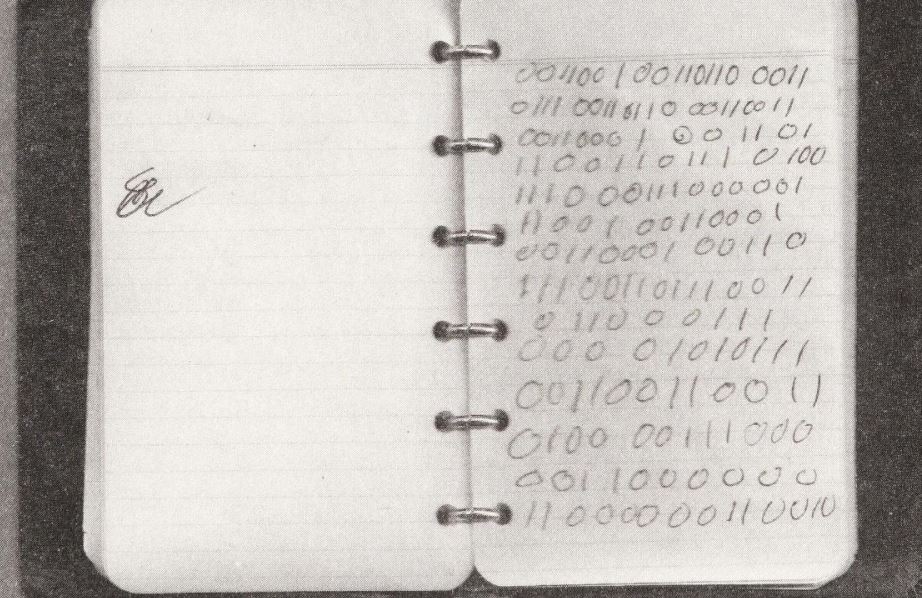 001100 1 00110110 0011
0111 00110110 00110011
0011000 1 0 0 11 01
11001101110100
1110 00111000001
11001 00110001
00110001 00110
111001101110011
0110 0 0111
000 01010111
00110011 00 11
0100 00111000
001 1000000
11000000011 0010